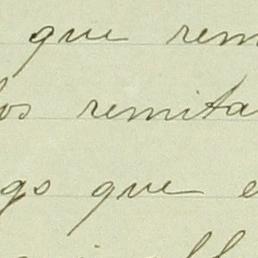 que rem
os remita
gs que e